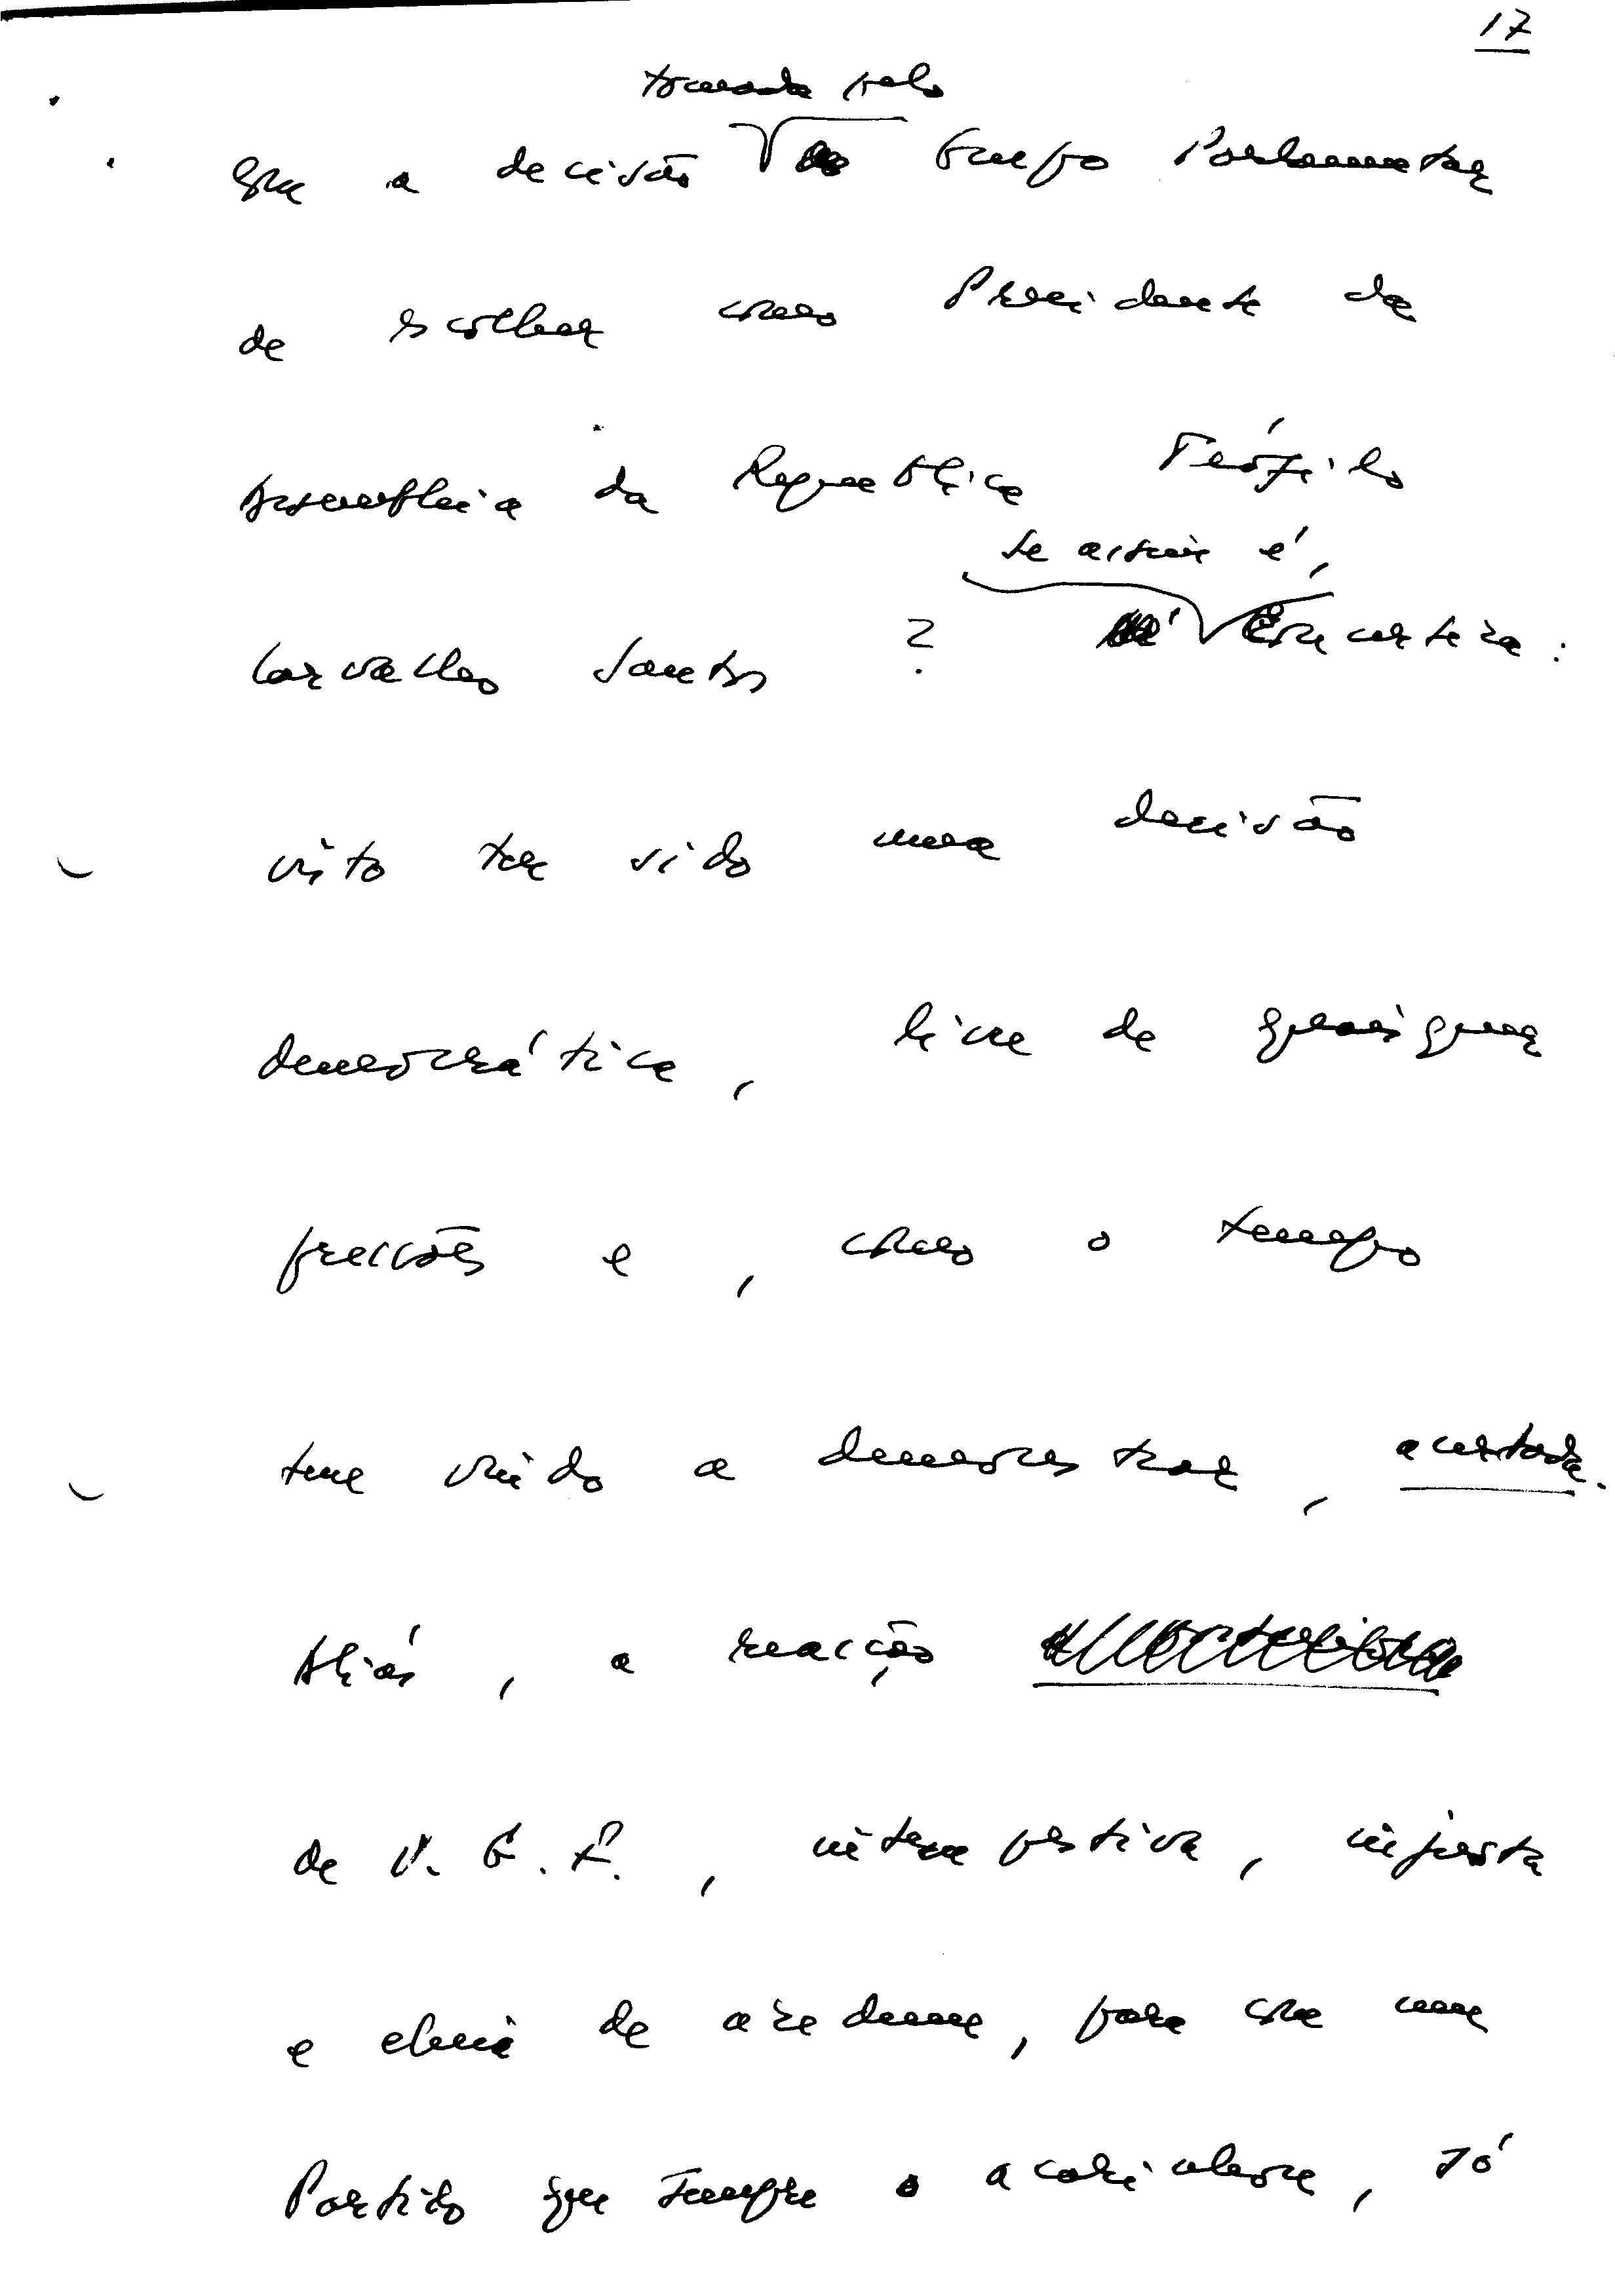 17
tomada pelo
que a decisão Grupo Parlamentar
de escolher como Presidente da
Assembleia da República Teófilo
se assim é,
Carvalho Santos ? Era certeza :
visto ter sido uma decisão
democrática , livre de quaisquer
pressões e , como o tempo
tem vindo a demonstrar , acertada .
Aliás , a reacção
de V. E. F. , intempestiva , injusta
e cheia de azedume , para com um
Partido que sempre o acarinhara , só